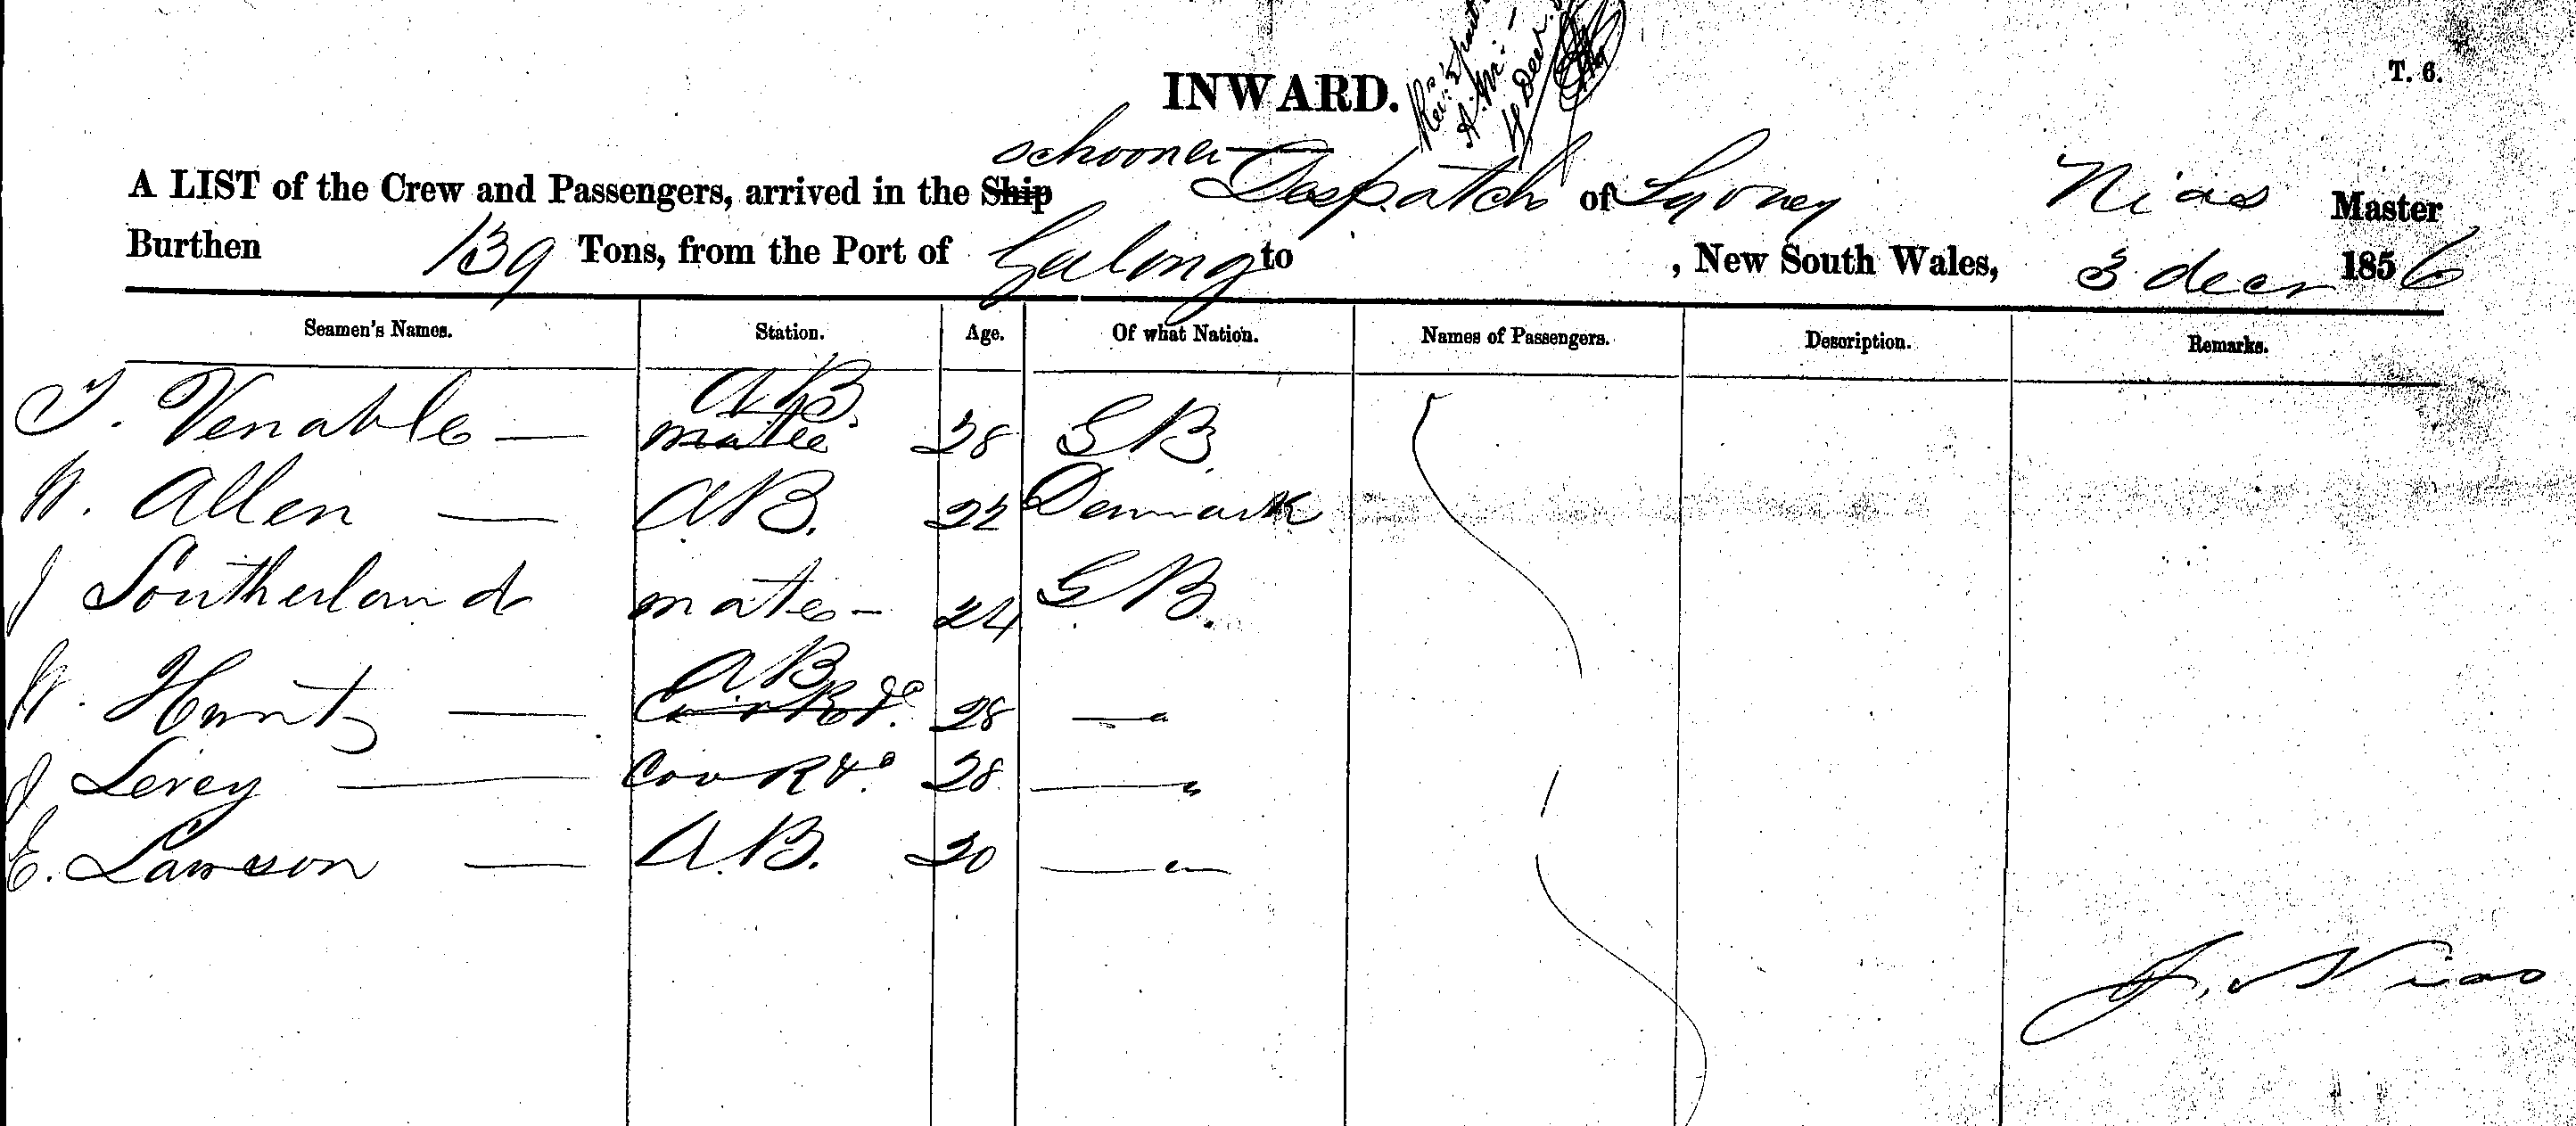 T. 6.
INWARD.
schooner
A LIST of the Crew and Passengers, arrived in the Ship Despatch of Sydney Nias Master
Burthen 139 Tons, from the Port of Geelong to , New South Wales, 3 decr 1856
Seamen's Names. Station. Age. Of what Nation. Names of Passengers. Description. Remarks.
T. Venable — AB. mate 28 GB.
W. Allen — AB. 22 Denmark
J Southerland mate - 24 GB.
W. Hunt — AB Cook &c. 28 — "
J Levey — Cook &c. 28 — "
E. Lawson — A.B. 20 — "
J. Nias